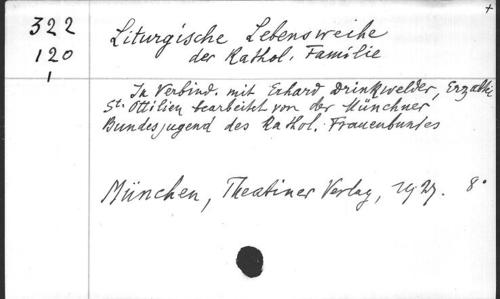 +
322 Liturgische Lebensweihe
120 der Kathol. Familie
1
In Verbind. mit Erhard Drinkwelder, Erzabtei
St. Ottilien bearbeitet von der Münchner
Bundesjugend des Kathol. Frauenbundes
München, Theatiner Verlag, 1927. 8°